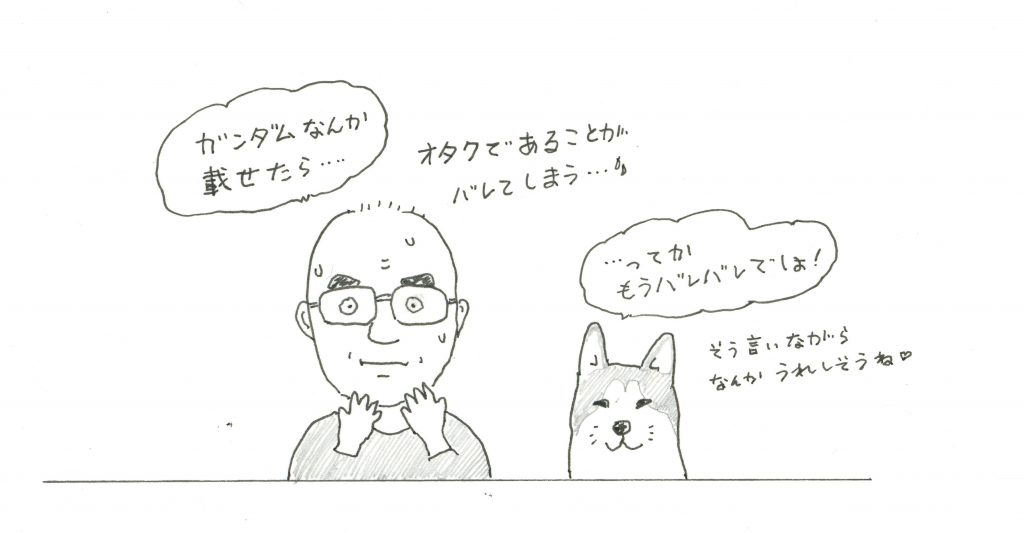 ガンダムなんか
載せたら‥‥
オタクであることが
バレてしまう…
…ってか
もうバレバレでしょ!
そう言いながら
なんか うれしそうね♡